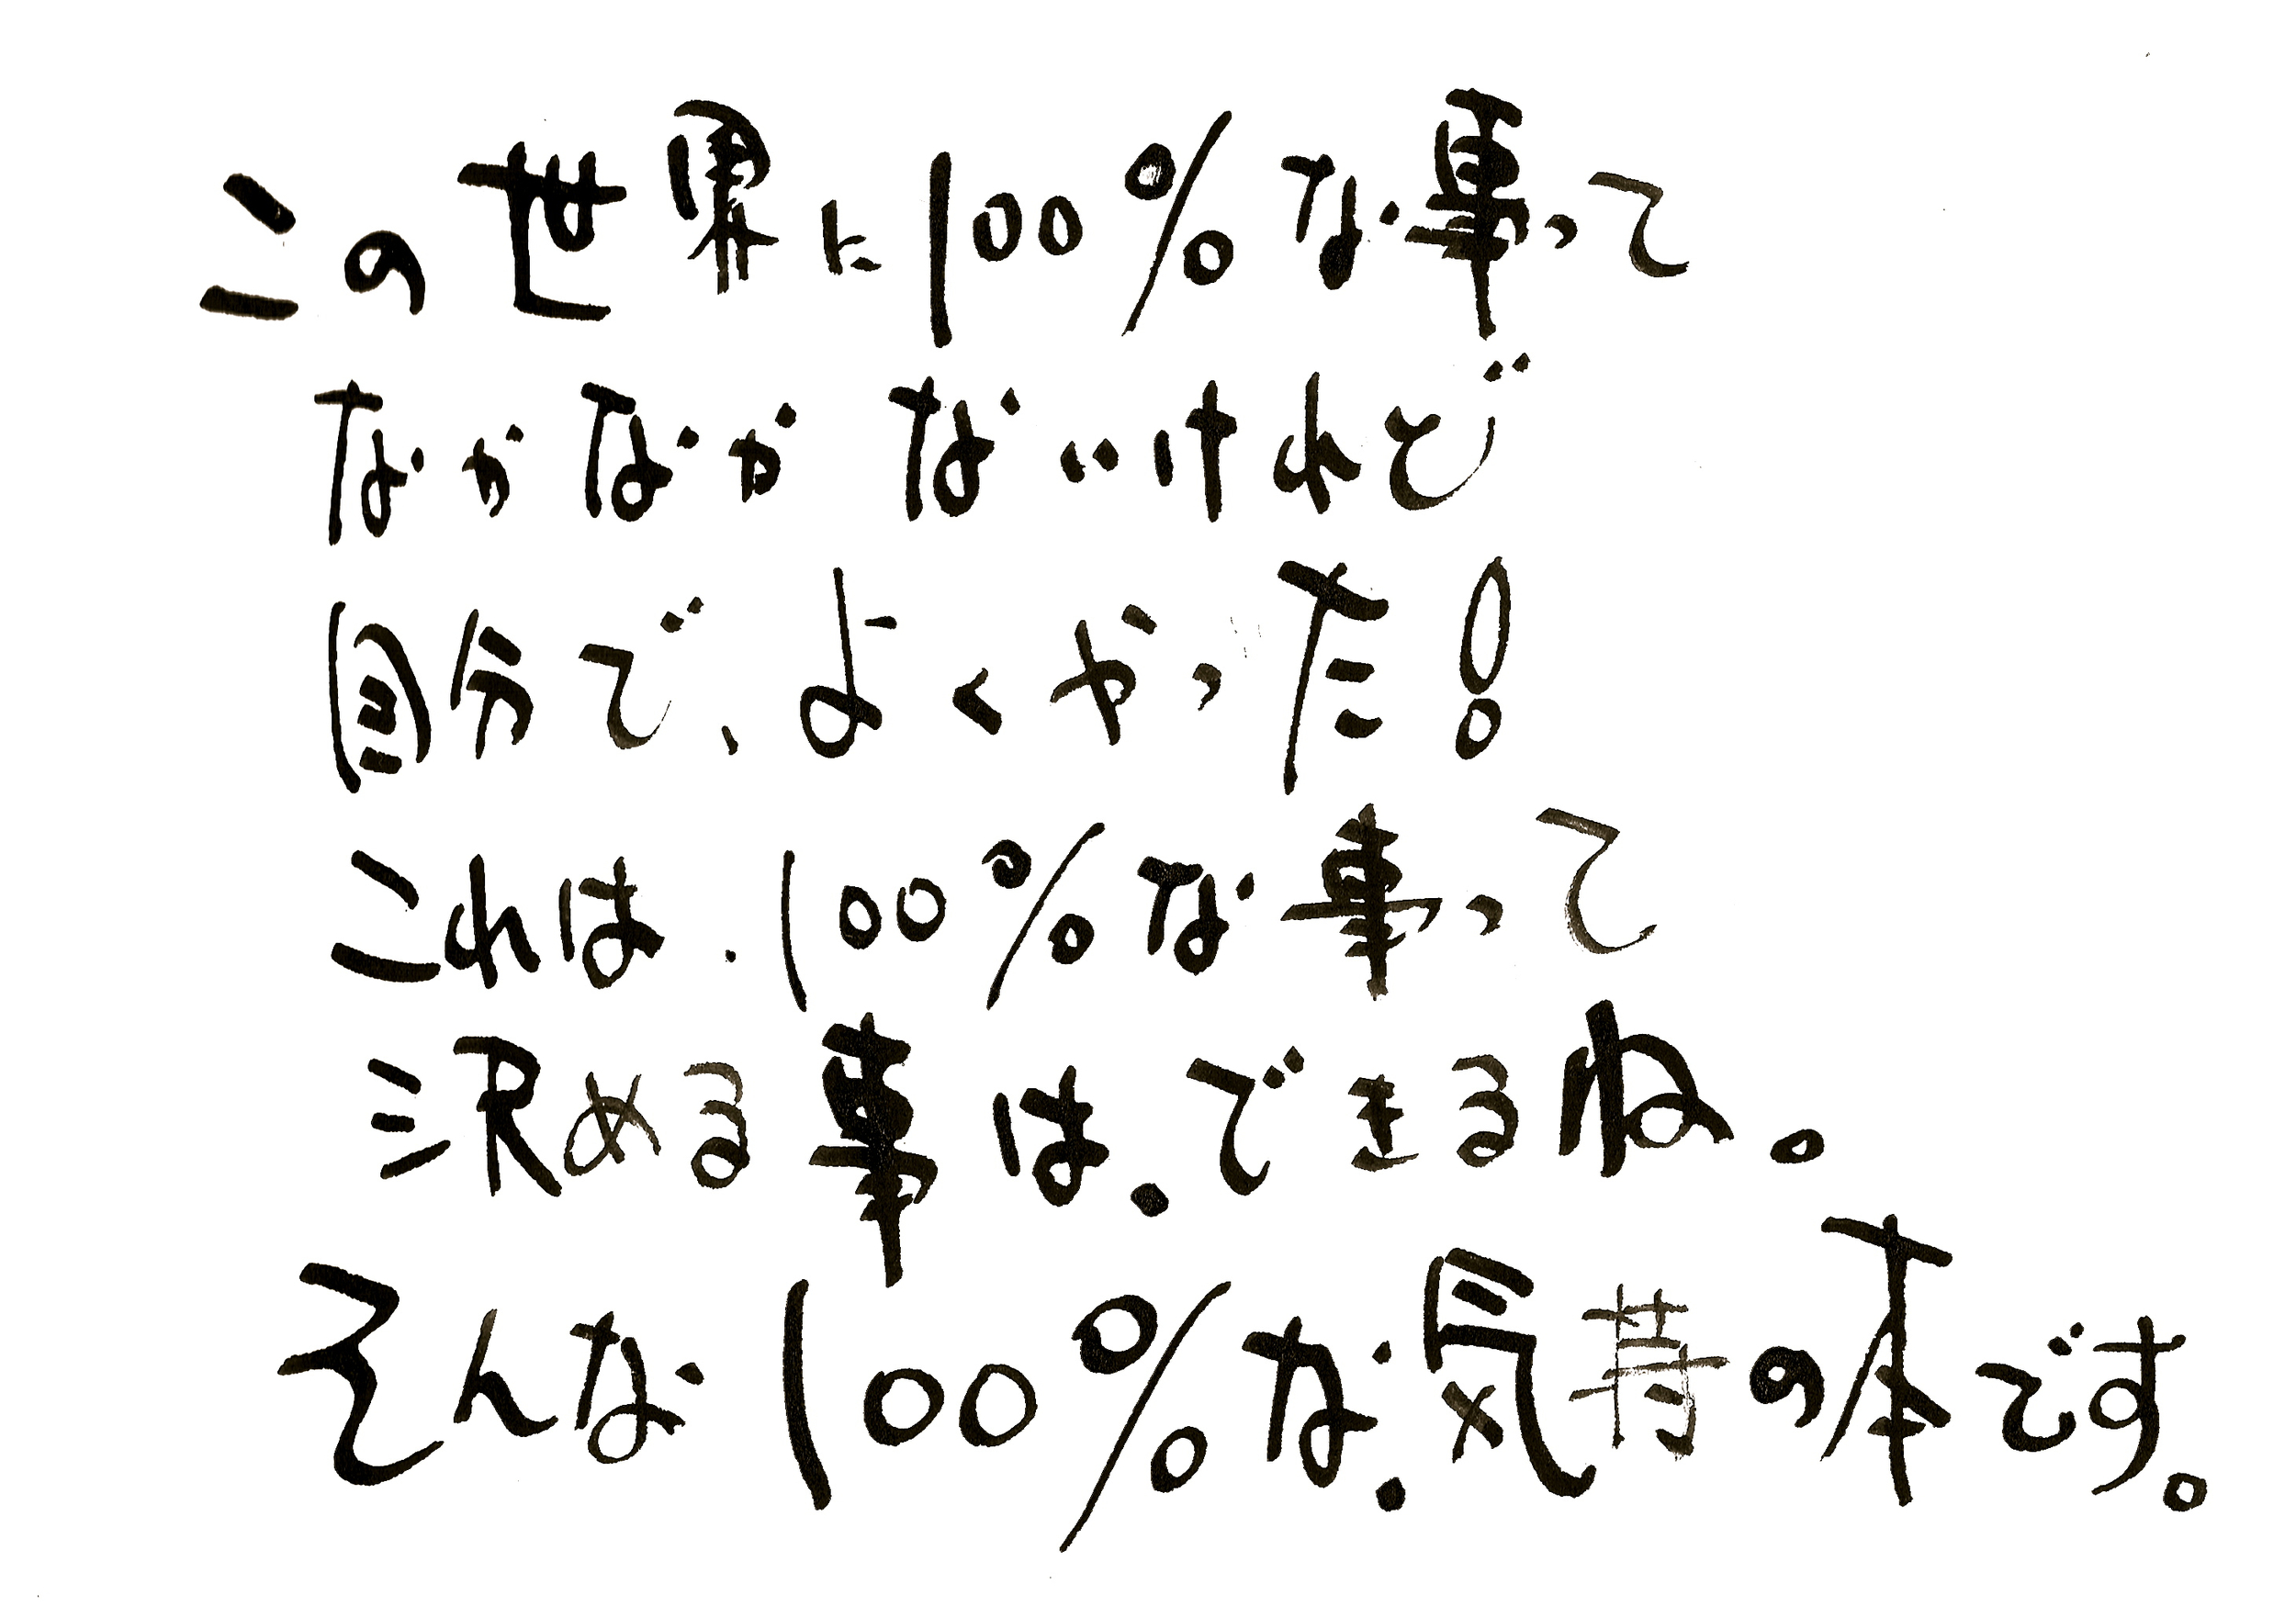 この世界に100%な事って
なかなかないけれど
自分で、よくやった!
これは.100%な事って
決める事は.できるね。
そんな100%な.気持の本です。